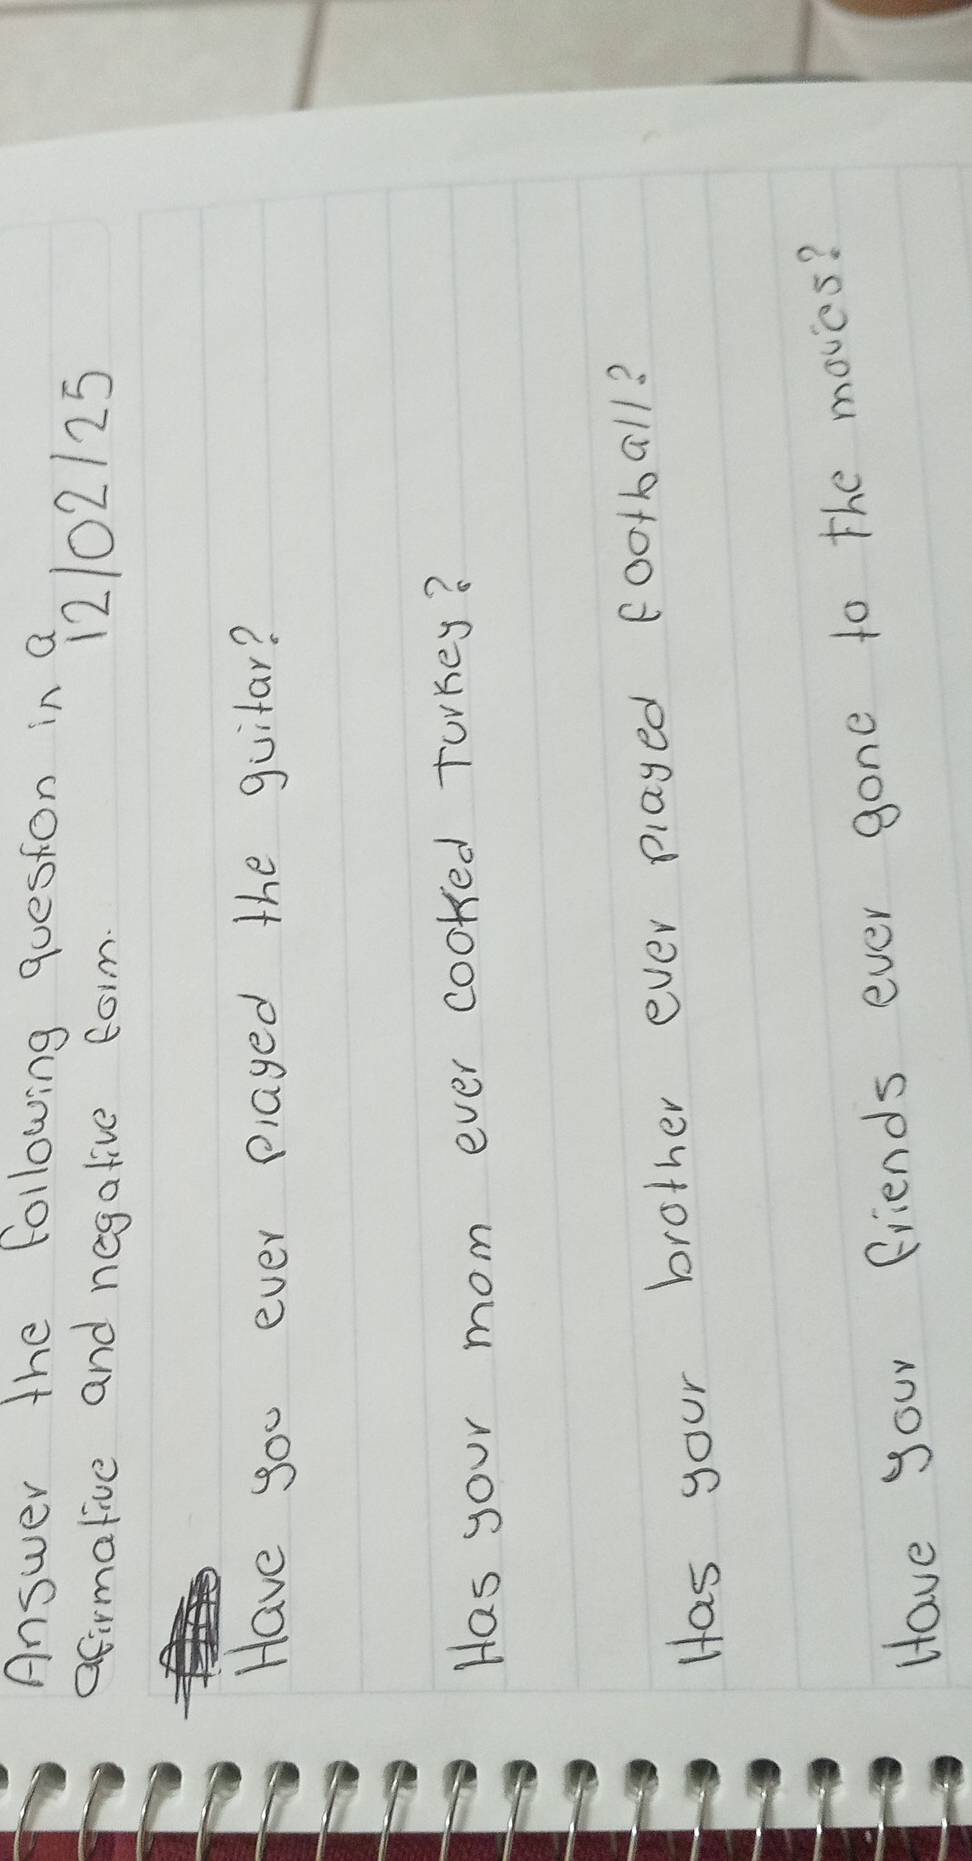 Answer the following question in a
12/02/25
afirmative and negative form.
Have you ever played the guitar?
Has your mom ever cooked Turkey?
Has your brother ever played football?
Have your friends ever gone to the movies?